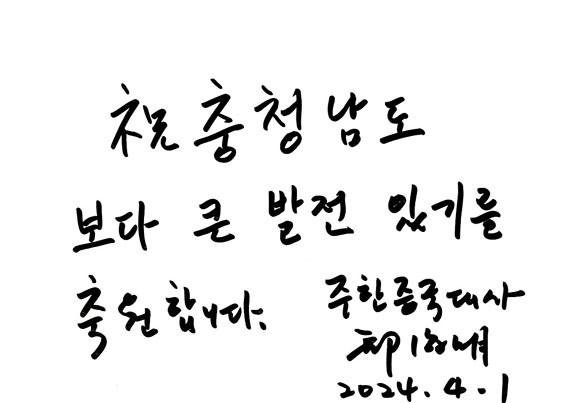 祝 충청남도
보다 큰 발전 있기를
축원합니다.
주한중국대사
邢海明
2024.4.1